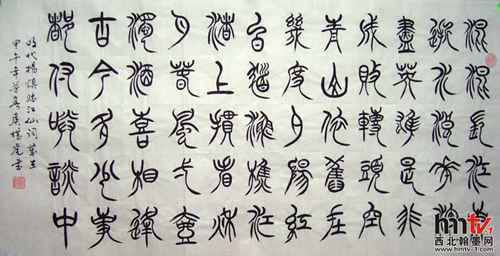 混混長江東
逝水浪花淘
盡英雄是非
成敗轉頭空
青山依舊在
幾度夕陽紅
白髮漁樵江
渚上慣看秋
月春風壹壺
濁酒喜相逢
古今多少事
都付咲談中
明代楊慎臨江仙詞
甲午年
hmtv.1
西北翰墨网
www.hmtv-1.com